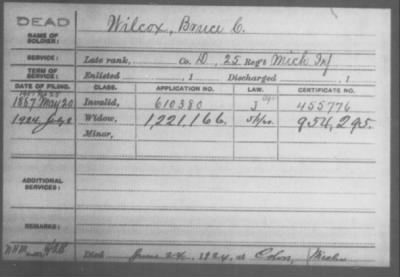 DEAD
NAME OF SOLDIER: Wilcox, Bruce C.
SERVICE: Late rank, Co. D, 25 Reg't Mich Inf
TERM OF SERVICE: Enlisted , 1 Discharged , 1
DATE OF FILING. CLASS. APPLICATION NO. LAW. CERTIFICATE NO.
1887 May 20 Invalid, 610380 455776
1924 July 2 Widow, 1,221,166. 954,295.
Minor,
ADDITIONAL SERVICES:
REMARKS:
Died June 24, 1924, at Colon, Mich